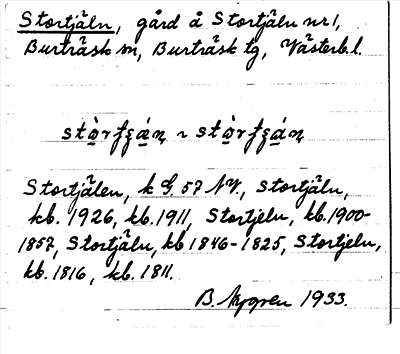 Stortjäln, gård å Stortjäln nr 1,
Burträsk sn, Burträsk tg, Västerb. l.
Stortjälen, k G. 57 NV, Stortjäln,
kb. 1926, kb. 1911, Stortjeln, kb. 1900-
1857, Stortjäln, kb 1846-1825, Stortjeln,
kb. 1816, kb. 1811.
B. Nygren 1933.